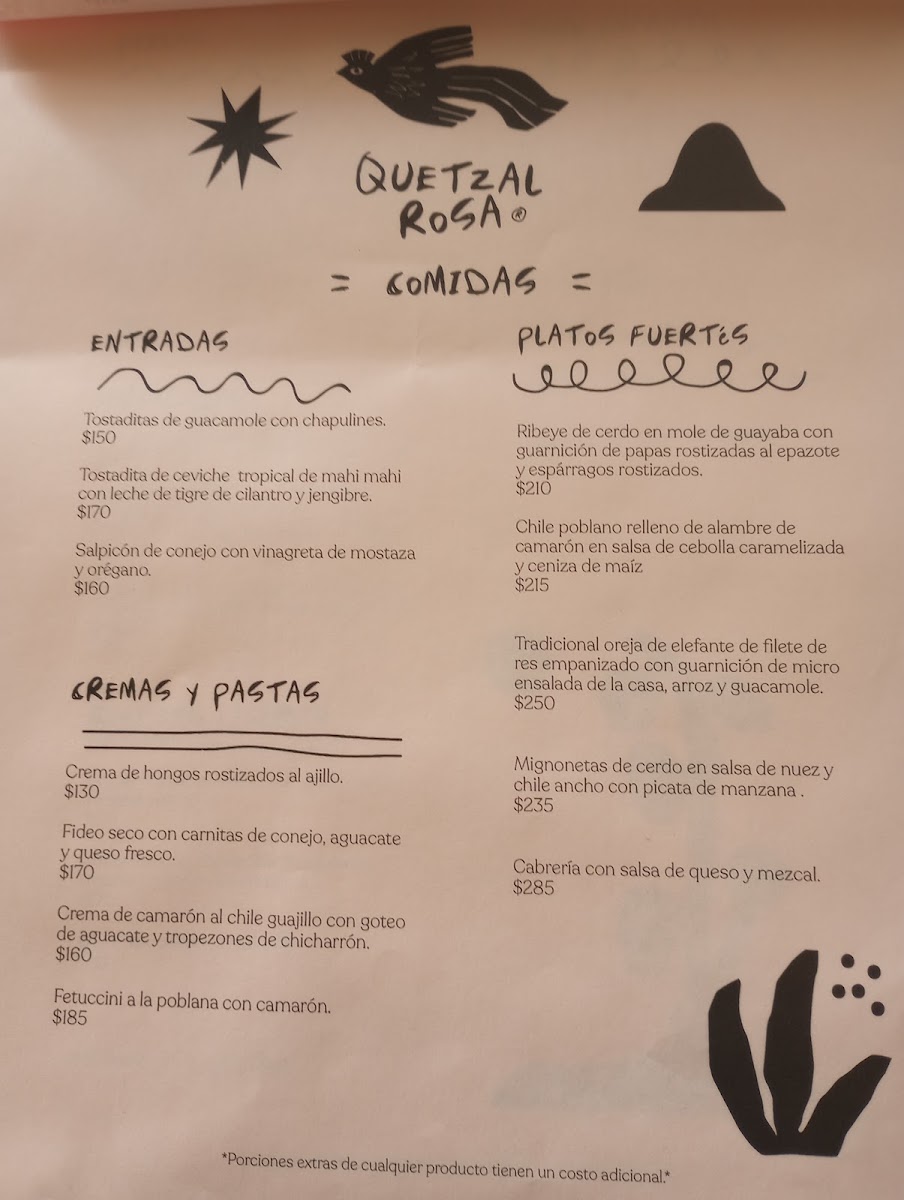 QUETZAL
ROSA ®
= COMIDAS =
ENTRADAS
Tostaditas de guacamole con chapulines.
$150
Tostadita de ceviche tropical de mahi mahi
con leche de tigre de cilantro y jengibre.
$170
Salpicón de conejo con vinagreta de mostaza
y orégano.
$160
CREMAS Y PASTAS
Crema de hongos rostizados al ajillo.
$130
Fideo seco con carnitas de conejo, aguacate
y queso fresco.
$170
Crema de camarón al chile guajillo con goteo
de aguacate y tropezones de chicharrón.
$160
Fetuccini a la poblana con camarón.
$185
PLATOS FUERTéS
Ribeye de cerdo en mole de guayaba con
guarnición de papas rostizadas al epazote
y espárragos rostizados.
$210
Chile poblano relleno de alambre de
camarón en salsa de cebolla caramelizada
y ceniza de maíz
$215
Tradicional oreja de elefante de filete de
res empanizado con guarnición de micro
ensalada de la casa, arroz y guacamole.
$250
Mignonetas de cerdo en salsa de nuez y
chile ancho con picata de manzana .
$235
Cabrería con salsa de queso y mezcal.
$285
*Porciones extras de cualquier producto tienen un costo adicional.*